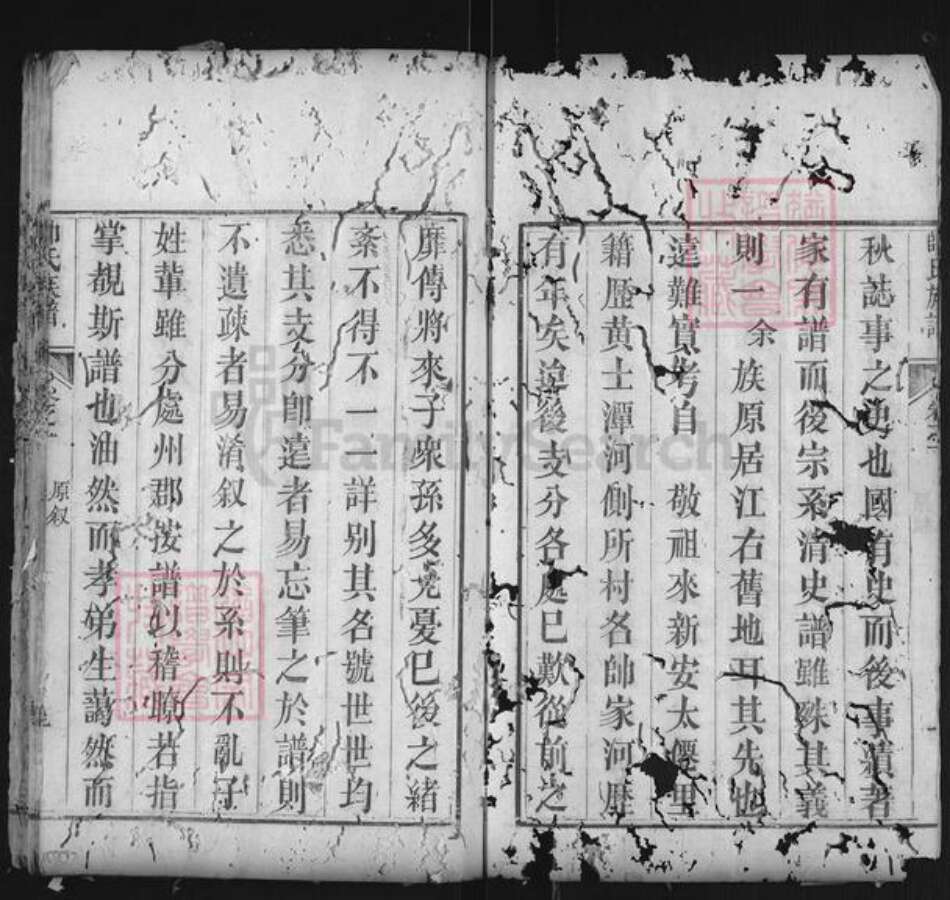 秋誌事之史也國有史而後事蹟著
家有譜而後宗系清史譜雖殊其義
則一余族原居江右舊地耳其先也
遠難實考自敬祖來新安太僊里
籍歷黃士潭河側所村名帥家河歷
有年矣追後支分各處已歎從前之
靡傳將來子衆孫多克憂已後之緒
紊不得不一一詳別其名號世世均
悉其支分即遠者易忘筆之於譜則
不遺疎者易淆叙之於系則不亂子
姓輩雖分處州郡按譜以稽瞭若指
掌覩斯譜也油然而孝弟生藹然而
帥氏族譜
原叙
FamilySearch